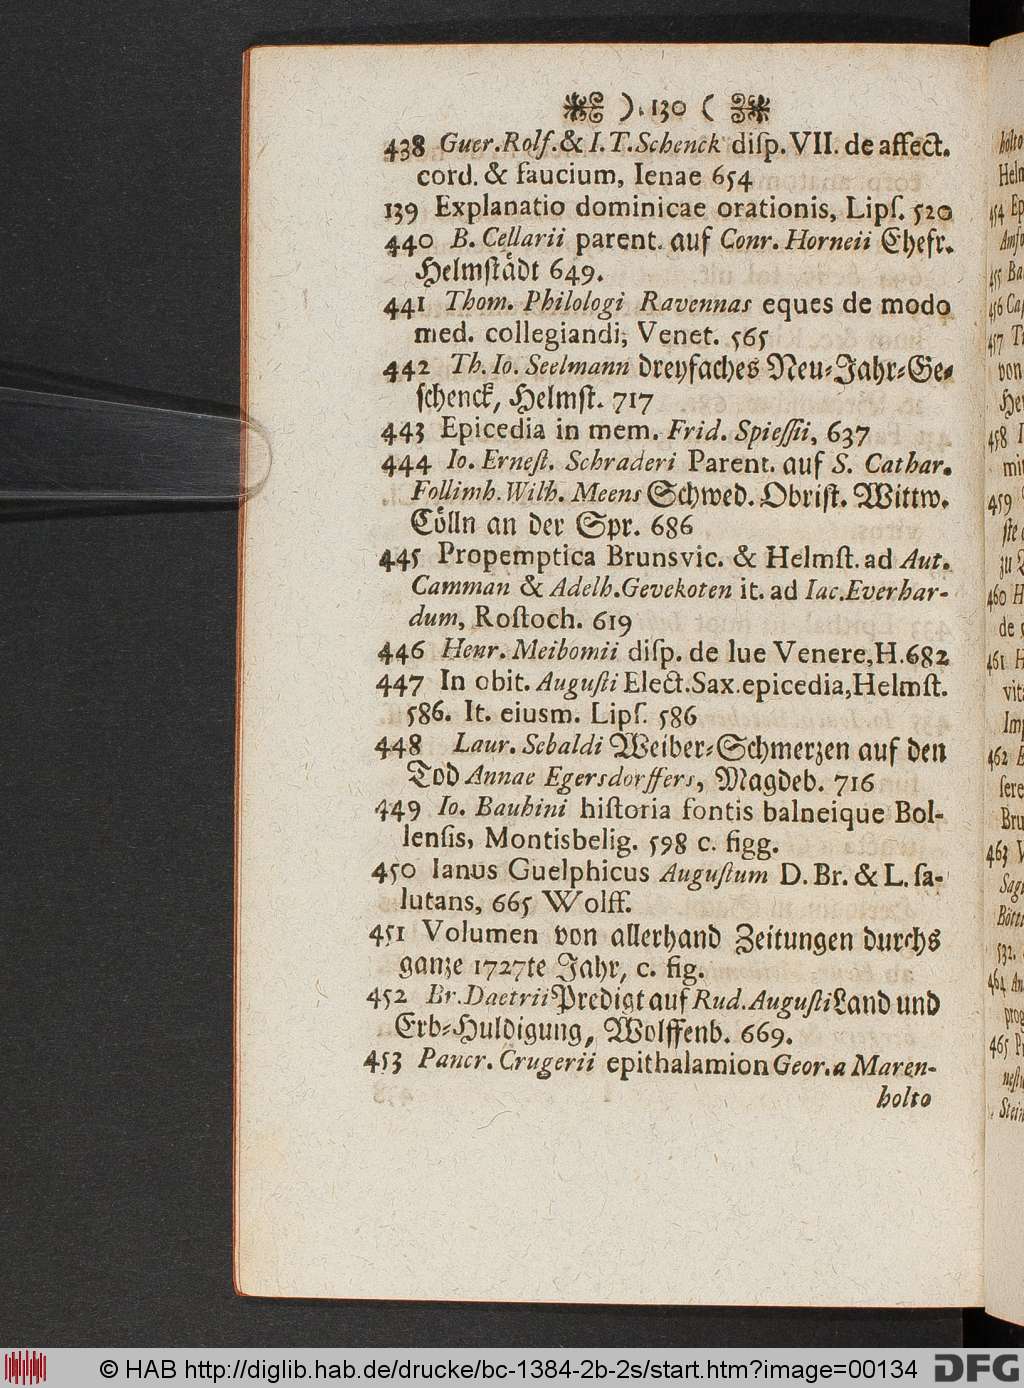 ) . 130 (
438 Guer. Rolf. & I. T. Schenck diſp. VII. de affect.
cord. & faucium, Ienae 654
139 Explanatio dominicae orationis, Lipſ. 520
440 B. Cellarii parent. auf Conr. Horneii Ehefr.
Helmſtädt 649.
441 Thom. Philologi Ravennas eques de modo
med. collegiandi, Venet. 565
442 Th. Io. Seelmann dreyfaches Neu-Jahr-Ge-
ſchenck, Helmſt. 717
443 Epicedia in mem. Frid. Spieſſii, 637
444 Io. Erneſt. Schraderi Parent. auf S. Cathar.
Follimh. Wilh. Meens Schwed. Obriſt. Wittw.
Cölln an der Spr. 686
445 Propemptica Brunsvic. & Helmſt. ad Aut.
Camman & Adelh. Gevekoten it. ad Iac. Everhar-
dum, Roſtoch. 619
446 Henr. Meibomii diſp. de lue Venere, H. 682
447 In obit. Auguſti Elect. Sax. epicedia, Helmſt.
586. It. eiusm. Lipſ. 586
448 Laur. Sebaldi Weiber-Schmerzen auf den
Tod Annae Egersdorffers, Magdeb. 716
449 Io. Bauhini hiſtoria fontis balneique Bol-
lenſis, Montisbelig. 598 c. figg.
450 Ianus Guelphicus Auguſtum D. Br. & L. ſa-
lutans, 665 Wolff.
451 Volumen von allerhand Zeitungen durchs
ganze 1727te Jahr, c. fig.
452 Br. Daetrii Predigt auf Rud. Auguſti Land und
Erb-Huldigung, Wolffenb. 669.
453 Pancr. Crugerii epithalamion Geor. a Maren-
holto
holto
Helm
454 Ep
455 Ba
456 Ca
457
von
458
459
zu
460 H
de
461 H
Imp
462
ſere
Bru
463
Sag
532.
464
prog
465
Stein
© HAB http://diglib.hab.de/drucke/bc-1384-2b-2s/start.htm?image=00134
DFG